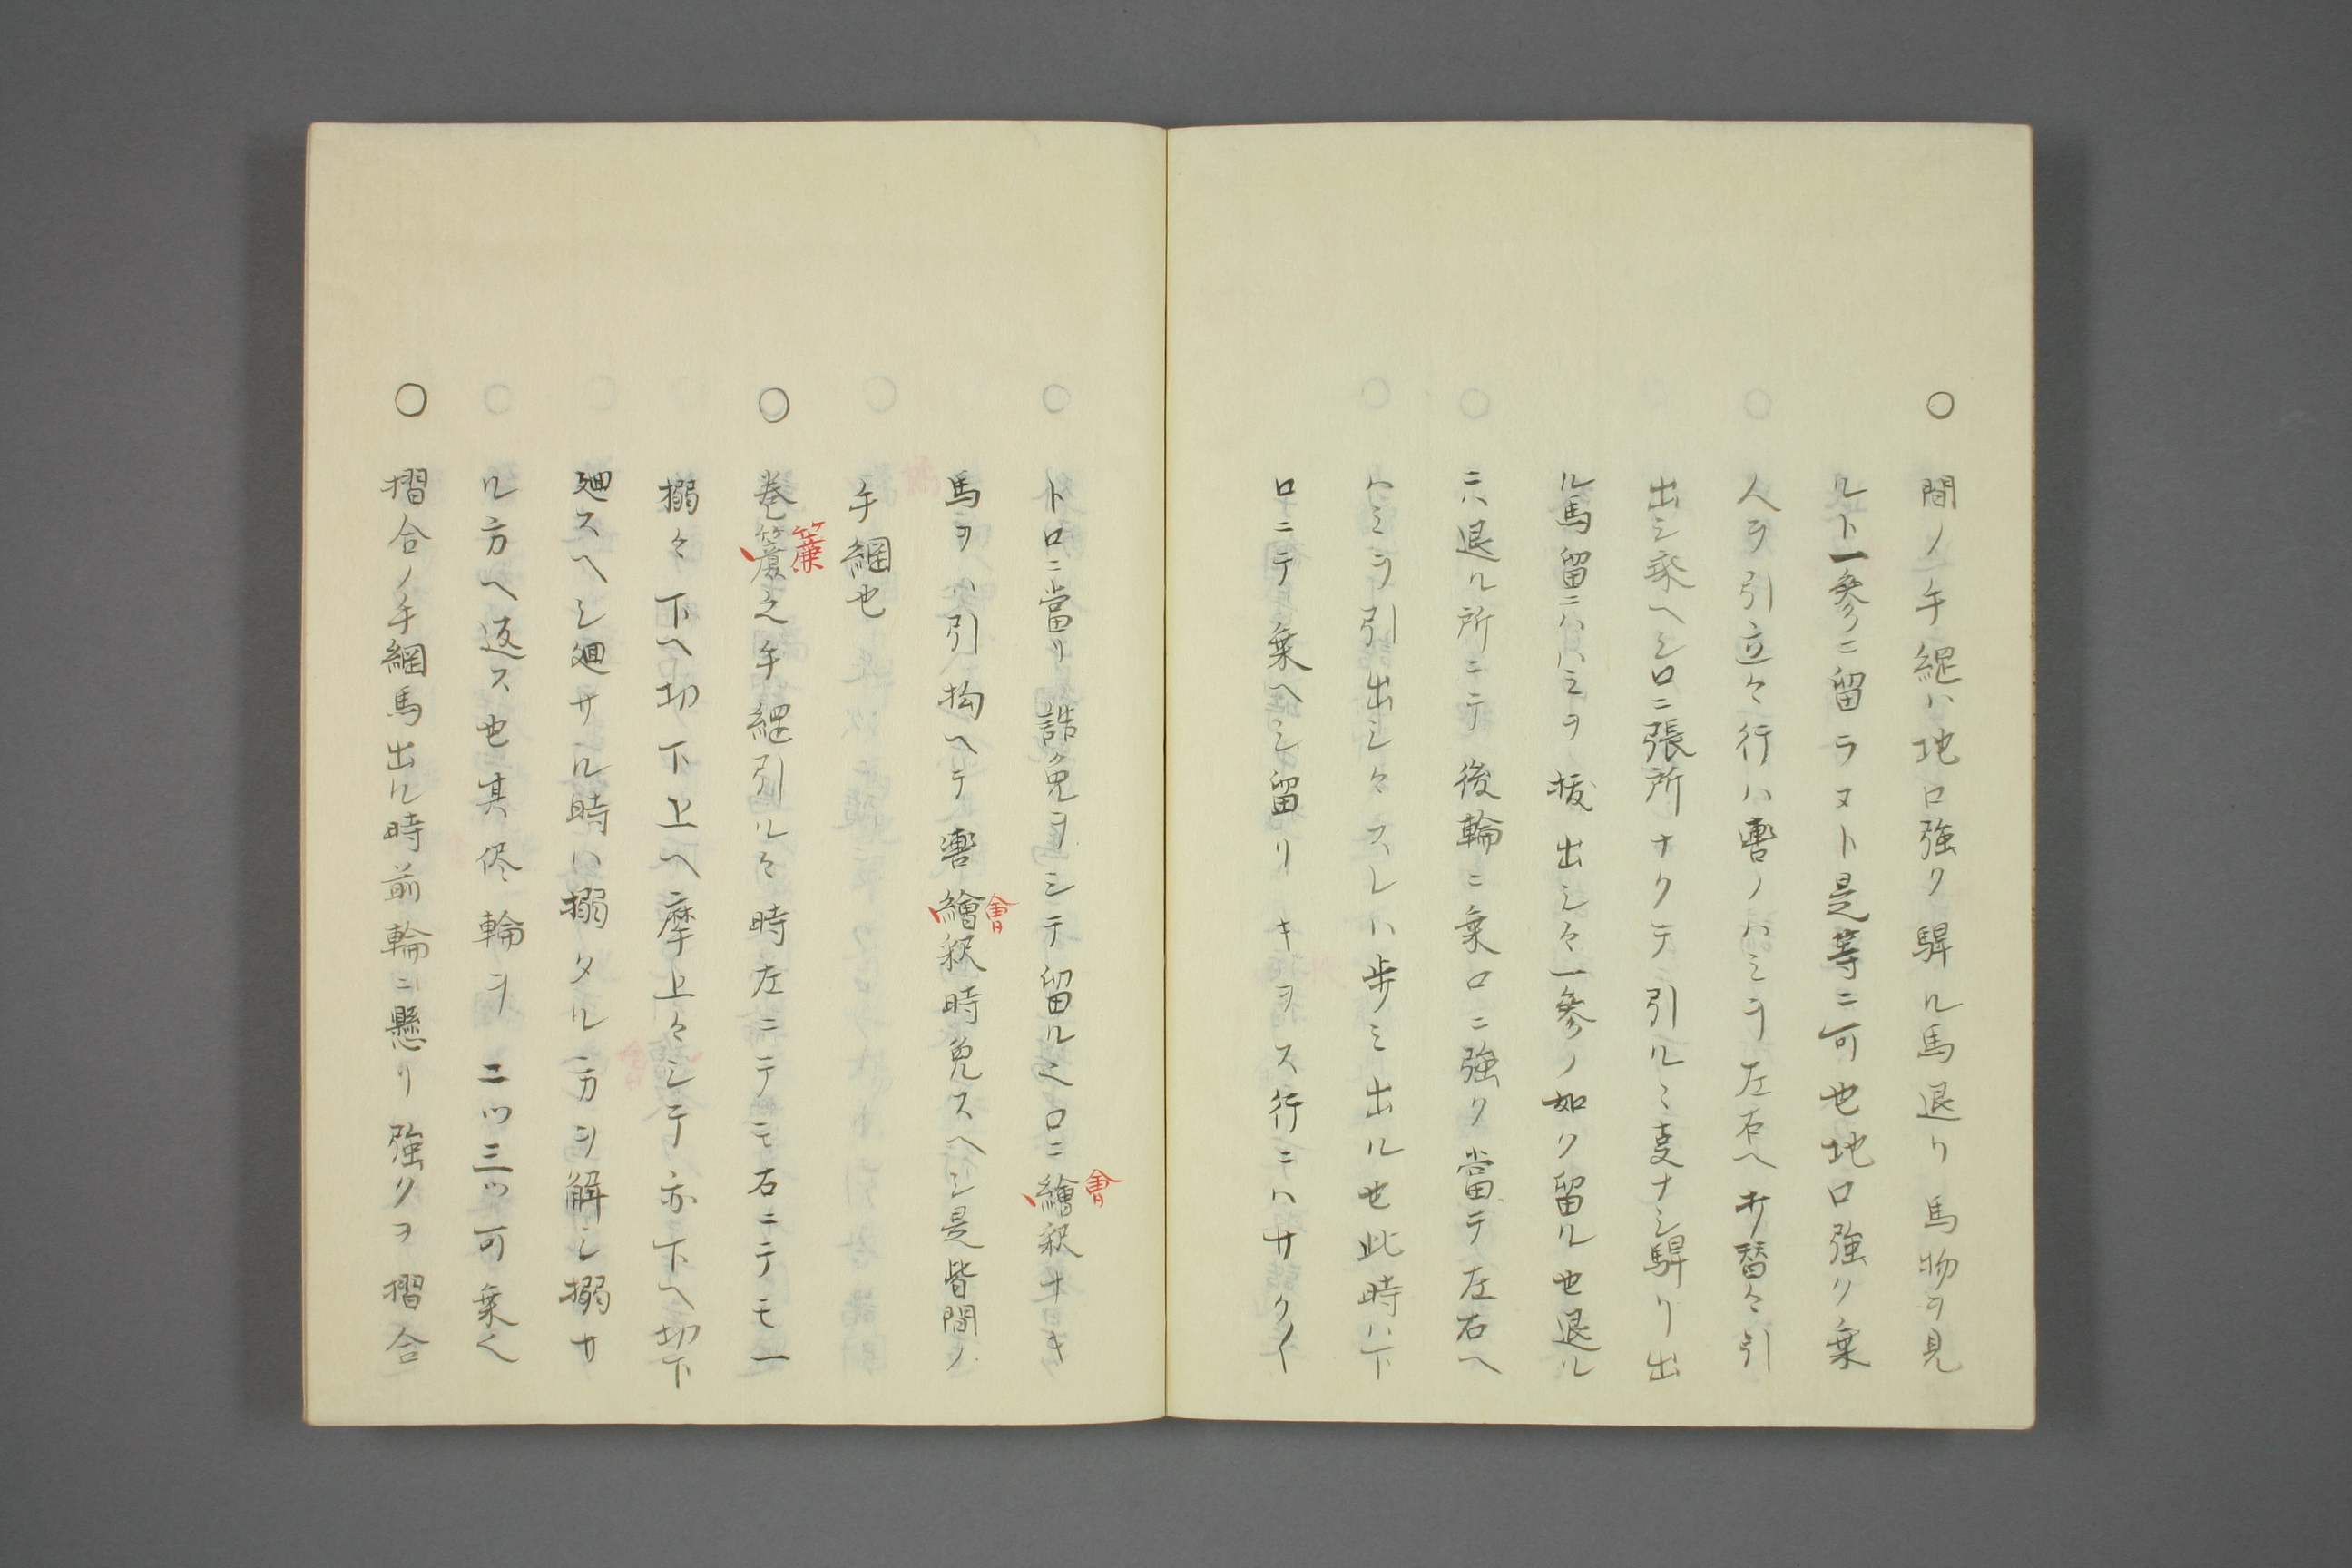 ○ 間ノ手綱ハ地口強ク騂ル馬退リ馬物ヲ見
ルト一参ニ留ラヌト是等ニ可也地口強クノ乗
人ヲ引立々行ハ轡ノハミヲ左右ヘキ替々引
出シ乘ヘシ口ニ張所ナクテ引ルミ支ナシ騂リ出
ル馬留ニハハミヲ抜出シ々一参ノ如ク留ル也退ル
ニハ退ル所ニテ後輪ニ乗口ニ強ク當テ左右ヘ
ハミヲ引出シ々スレハ歩ミ出ル也此時ハ下
口ニテ乗ヘシ留リキヲス行ニハサク〱
トロニ當リ誥免ヲシテ留ルミ口ニ繪釈ナキ
會
馬ヲハ引拘ヘテ轡繪釈時免スヘシ是皆間ノ
會
手綱也
○ 巻簾之手綱引ル々時左ニテモ右ニテモ一
簾
搦々下ヘ切下上ヘ摩上々シテ亦下ヘ切下
廻スヘシ廻サル時ハ搦タル方ヲ解シ搦サ
ル方ヘ返ス也其侭輪ヲ二ツ三ツ可乗く
○ 摺合ノ手綱馬出ル時前輪ニ懸リ強クヲ摺合